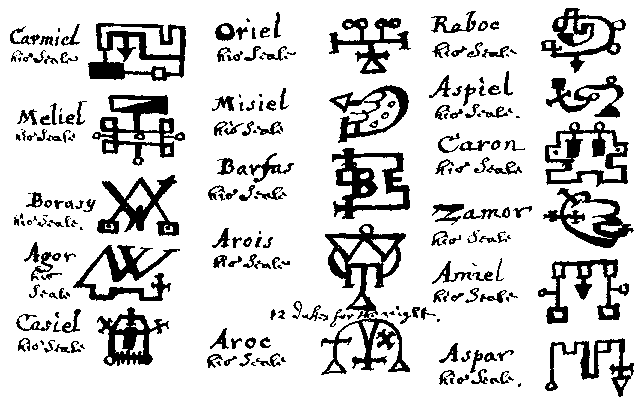 Carmiel
his Seale
Meliel
his Seale
Borasy
his Seale.
Agor
his
Seale
Casiel
his Seale
Oriel
his Seale
Misiel
his Seale
Barfas
his Seale
Arois
his Seale
12 Dukes for the night.
Aroc
his Seale
Raboc
his Seale
Aspiel
his Seale.
Caron
his Seale
Zamor
his Seale
Amiel
his Seale
Aspar
his Seale.